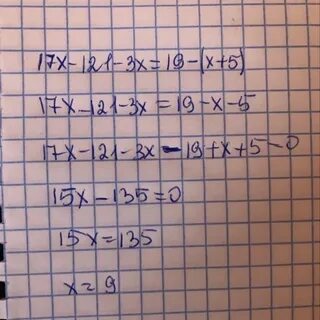 17x-121-3x=19-(x+5)
17x-121-3x=19-x-5
17x-121-3x-19+x+5-0
15x-135=0
15x=135
x=9